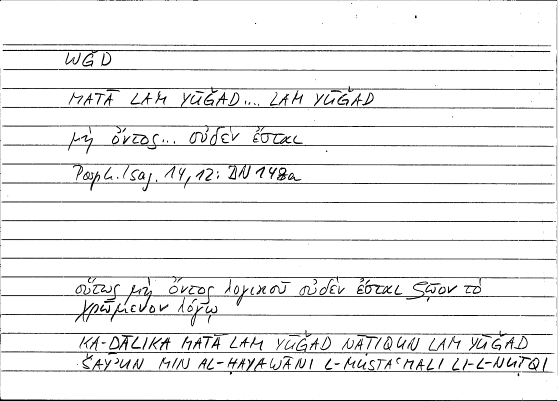 WǦD
MATĀ LAM YŪǦAD.... LAM YŪǦAD
μὴ ὄντος... οὐδὲν ἔσται
Porph. Isag. 14, 12: DN 148a
οὕτως μὴ ὄντος λογικοῦ οὐδὲν ἔσται ζῷον τὸ
χρώμενον λόγῳ
KA-ḎĀLIKA MATĀ LAM YŪǦAD NĀṬIQUN LAM YŪǦAD
ŠAYʾUN MIN AL-ḤAYAWĀNI L-MUSTAʿMALI LI-L-NUṬQI